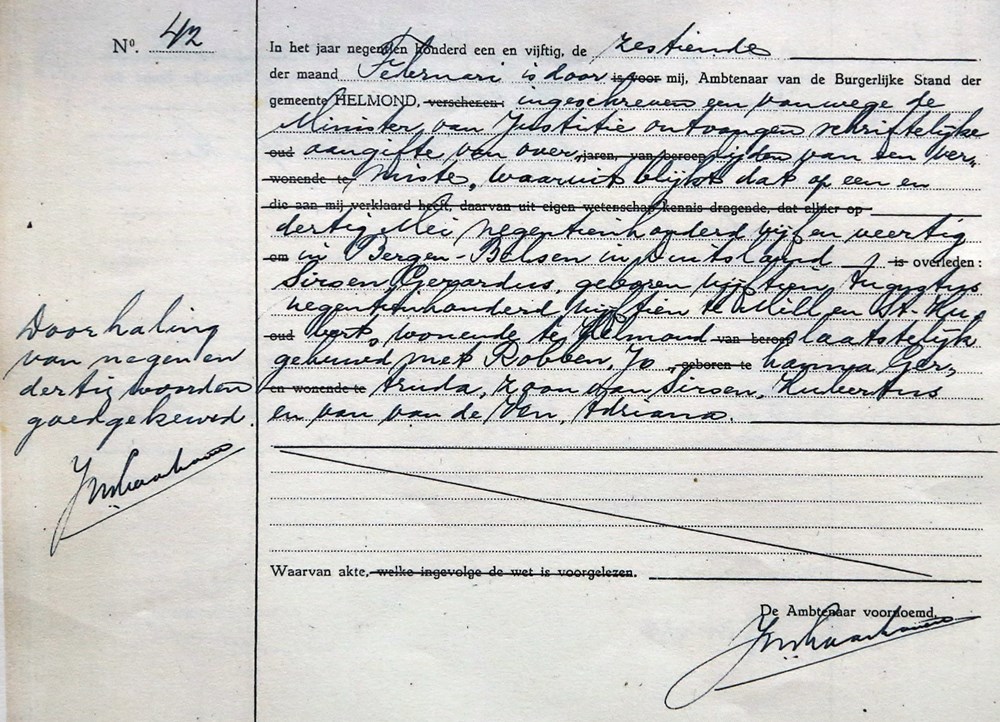 Nº. 42
In het jaar negentien honderd een en vijftig, de zestiende
der maand Februari is door is voor mij, Ambtenaar van de Burgerlijke Stand der
gemeente HELMOND, verschenen: ingeschreven een vanwege de
Minister van Justitie ontvangen schriftelijke
oud aangifte van over jaren, van beroep lijden van een ver-
wonende te miste, waaruit blijkt dat op een en
die aan mij verklaard heeft, daarvan uit eigen wetenschap kennis dragende, dat alhier op
dertig Mei negentienhonderd vijf en veertig
om in Bergen-Belsen in Duitsland is overleden:
Sirsen Gerardus, geboren vijftien Augustus
negentienhonderd vijftien te Mill en St-Hu-
oud bert, wonende te Helmond van beroep laatstelijk
gehuwd met Robben, Jo geboren te hanna Ger-
en wonende te truda, zoon van Sirsen, Hubertus
en van van de Ven, Adriana.
Waarvan akte, welke ingevolge de wet is voorgelezen.
De Ambtenaar voornoemd,
Doorhaling
van negen en
dertig woorden
goedgekeurd.